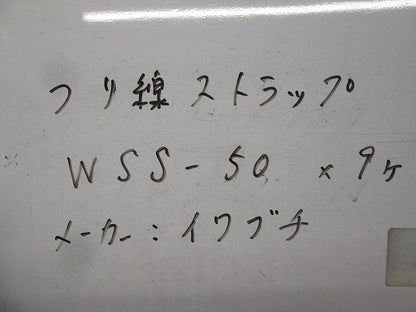 つり線ストラップ
WSS-50 x 9ヶ
メーカー:イワブチ